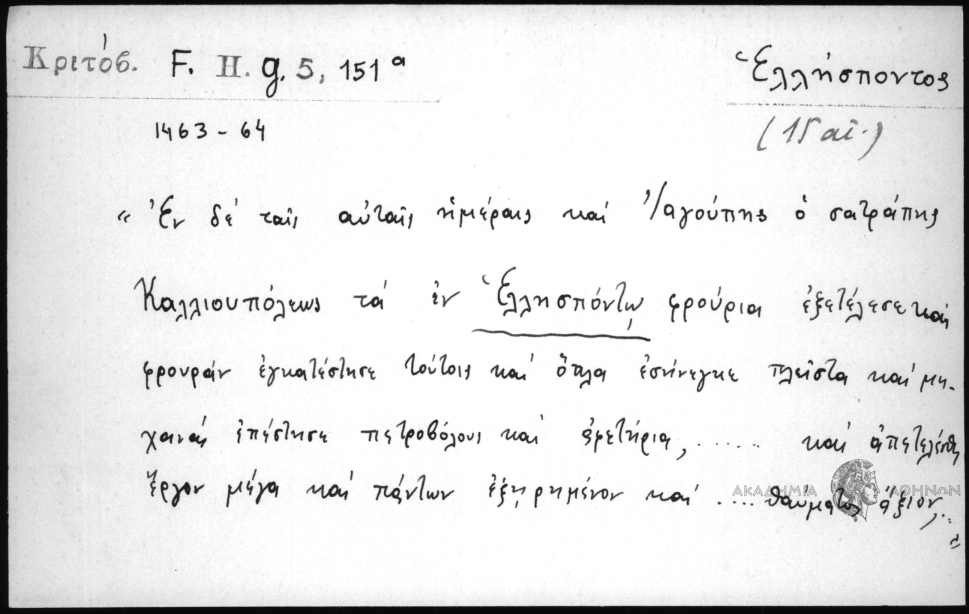 Κριτόβ. F. H. g. 5, 151ᵃ Ἑλλήσποντος
1463 - 64 (15 αἰ.)
" Ἐν δέ ταῖς αὐταῖς ἡμέραις καί Ἰαγούπης ὁ σατράπης
Καλλιουπόλεως τά ἐν Ἑλλησπόντῳ φρούρια ἐξετέλεσε καί
φρουράν ἐγκατέστησε τούτοις καί ὅπλα ἐσήνεγκε πλεῖστα καί μη-
χανάς ἐπέστησε πετροβόλους καί ἀφετήρια, ...... καί ἀπετελέσθη
ἔργον μέγα καί πάντων ἐξῃρημένον καί .... θαύματος ἄξιον, .. "
ΑΚΑΔΗΜΙΑ ΑΘΗΝΩΝ